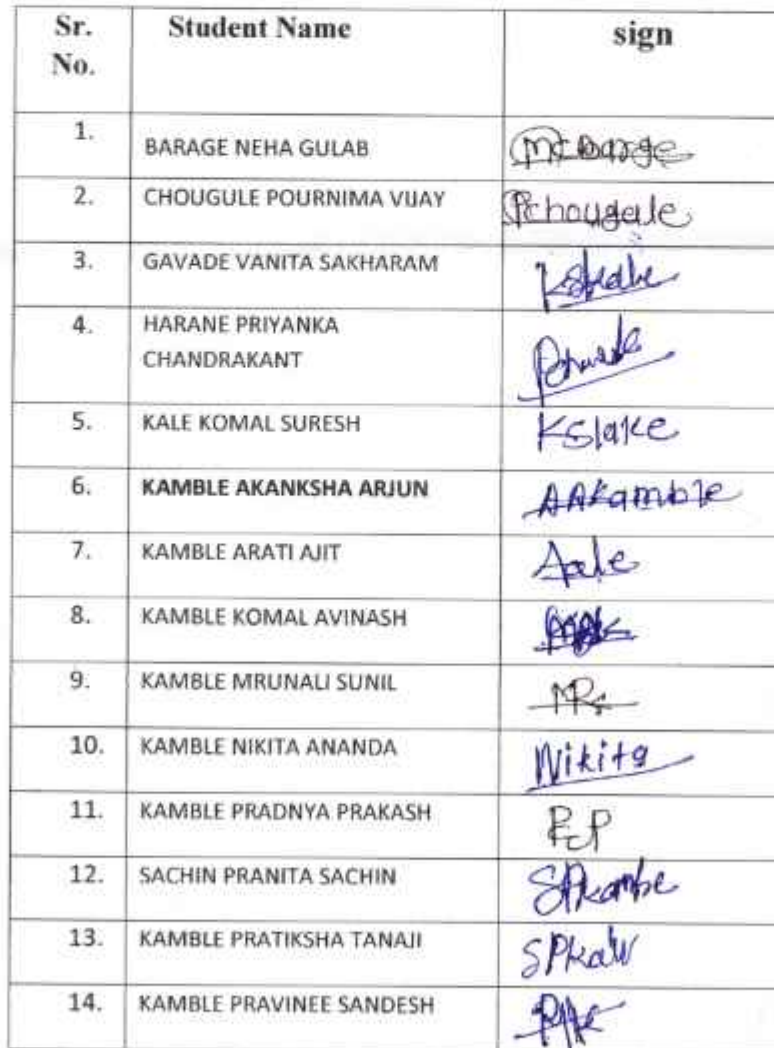 Sr. No. Student Name sign
1. BARAGE NEHA GULAB
2. CHOUGULE POURNIMA VIJAY Pchougule
3. GAVADE VANITA SAKHARAM
4. HARANE PRIYANKA
CHANDRAKANT
5. KALE KOMAL SURESH
6. KAMBLE AKANKSHA ARJUN AAKamble
7. KAMBLE ARATI AJIT
8. KAMBLE KOMAL AVINASH
9. KAMBLE MRUNALI SUNIL
10. KAMBLE NIKITA ANANDA Nikita
11. KAMBLE PRADNYA PRAKASH
12. SACHIN PRANITA SACHIN
13. KAMBLE PRATIKSHA TANAJI
14. KAMBLE PRAVINEE SANDESH